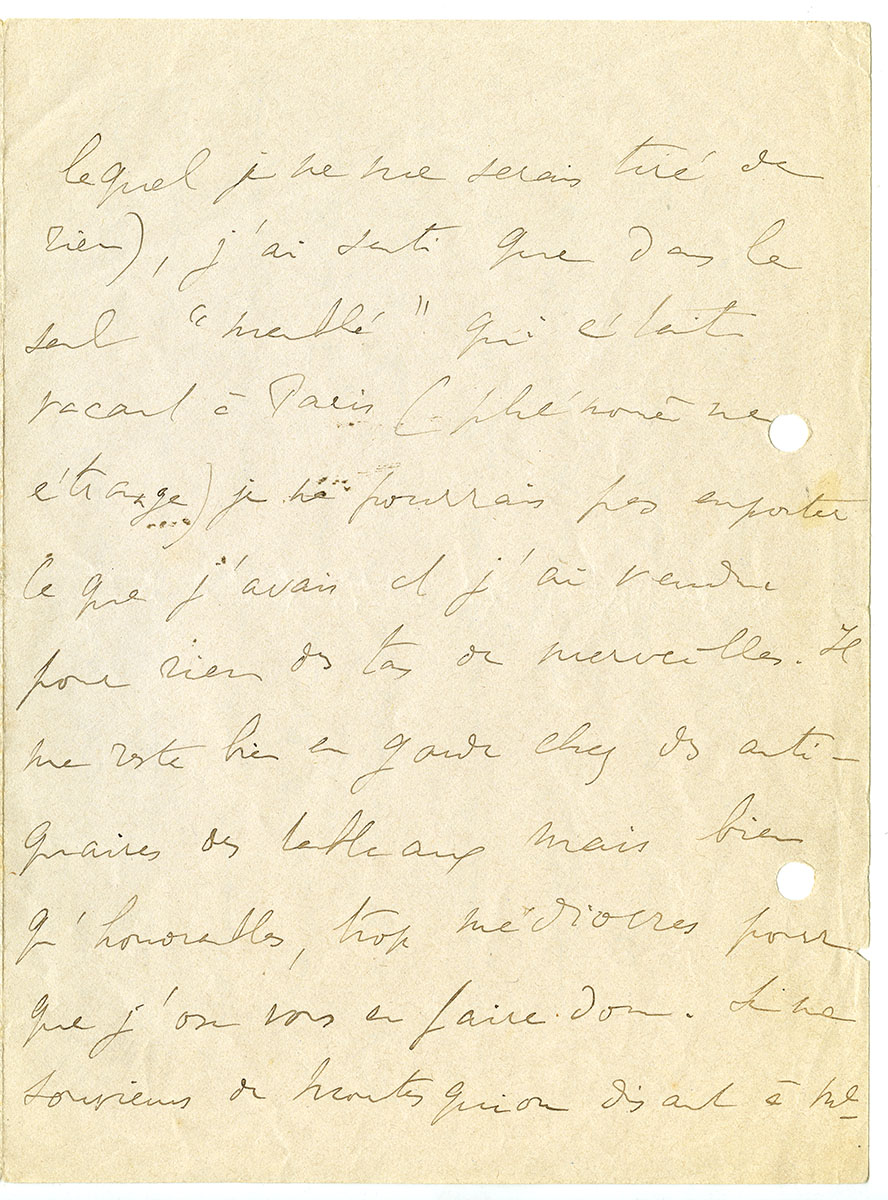 lequel je ne me serais tiré de
rien), j'ai senti que dans le
seul "meublé" qui était
vacant à Paris (phénomène
étrange) je ne pourrais pas emporter
ce que j'avais et j'ai vendu
pour rien des tas de merveilles. Il
me reste bien en garde chez des anti-
quaires des tableaux mais bien
qu'honorables, trop médiocres pour
que j'ose vous en faire don. Je me
souviens de Montesquiou disant à Me